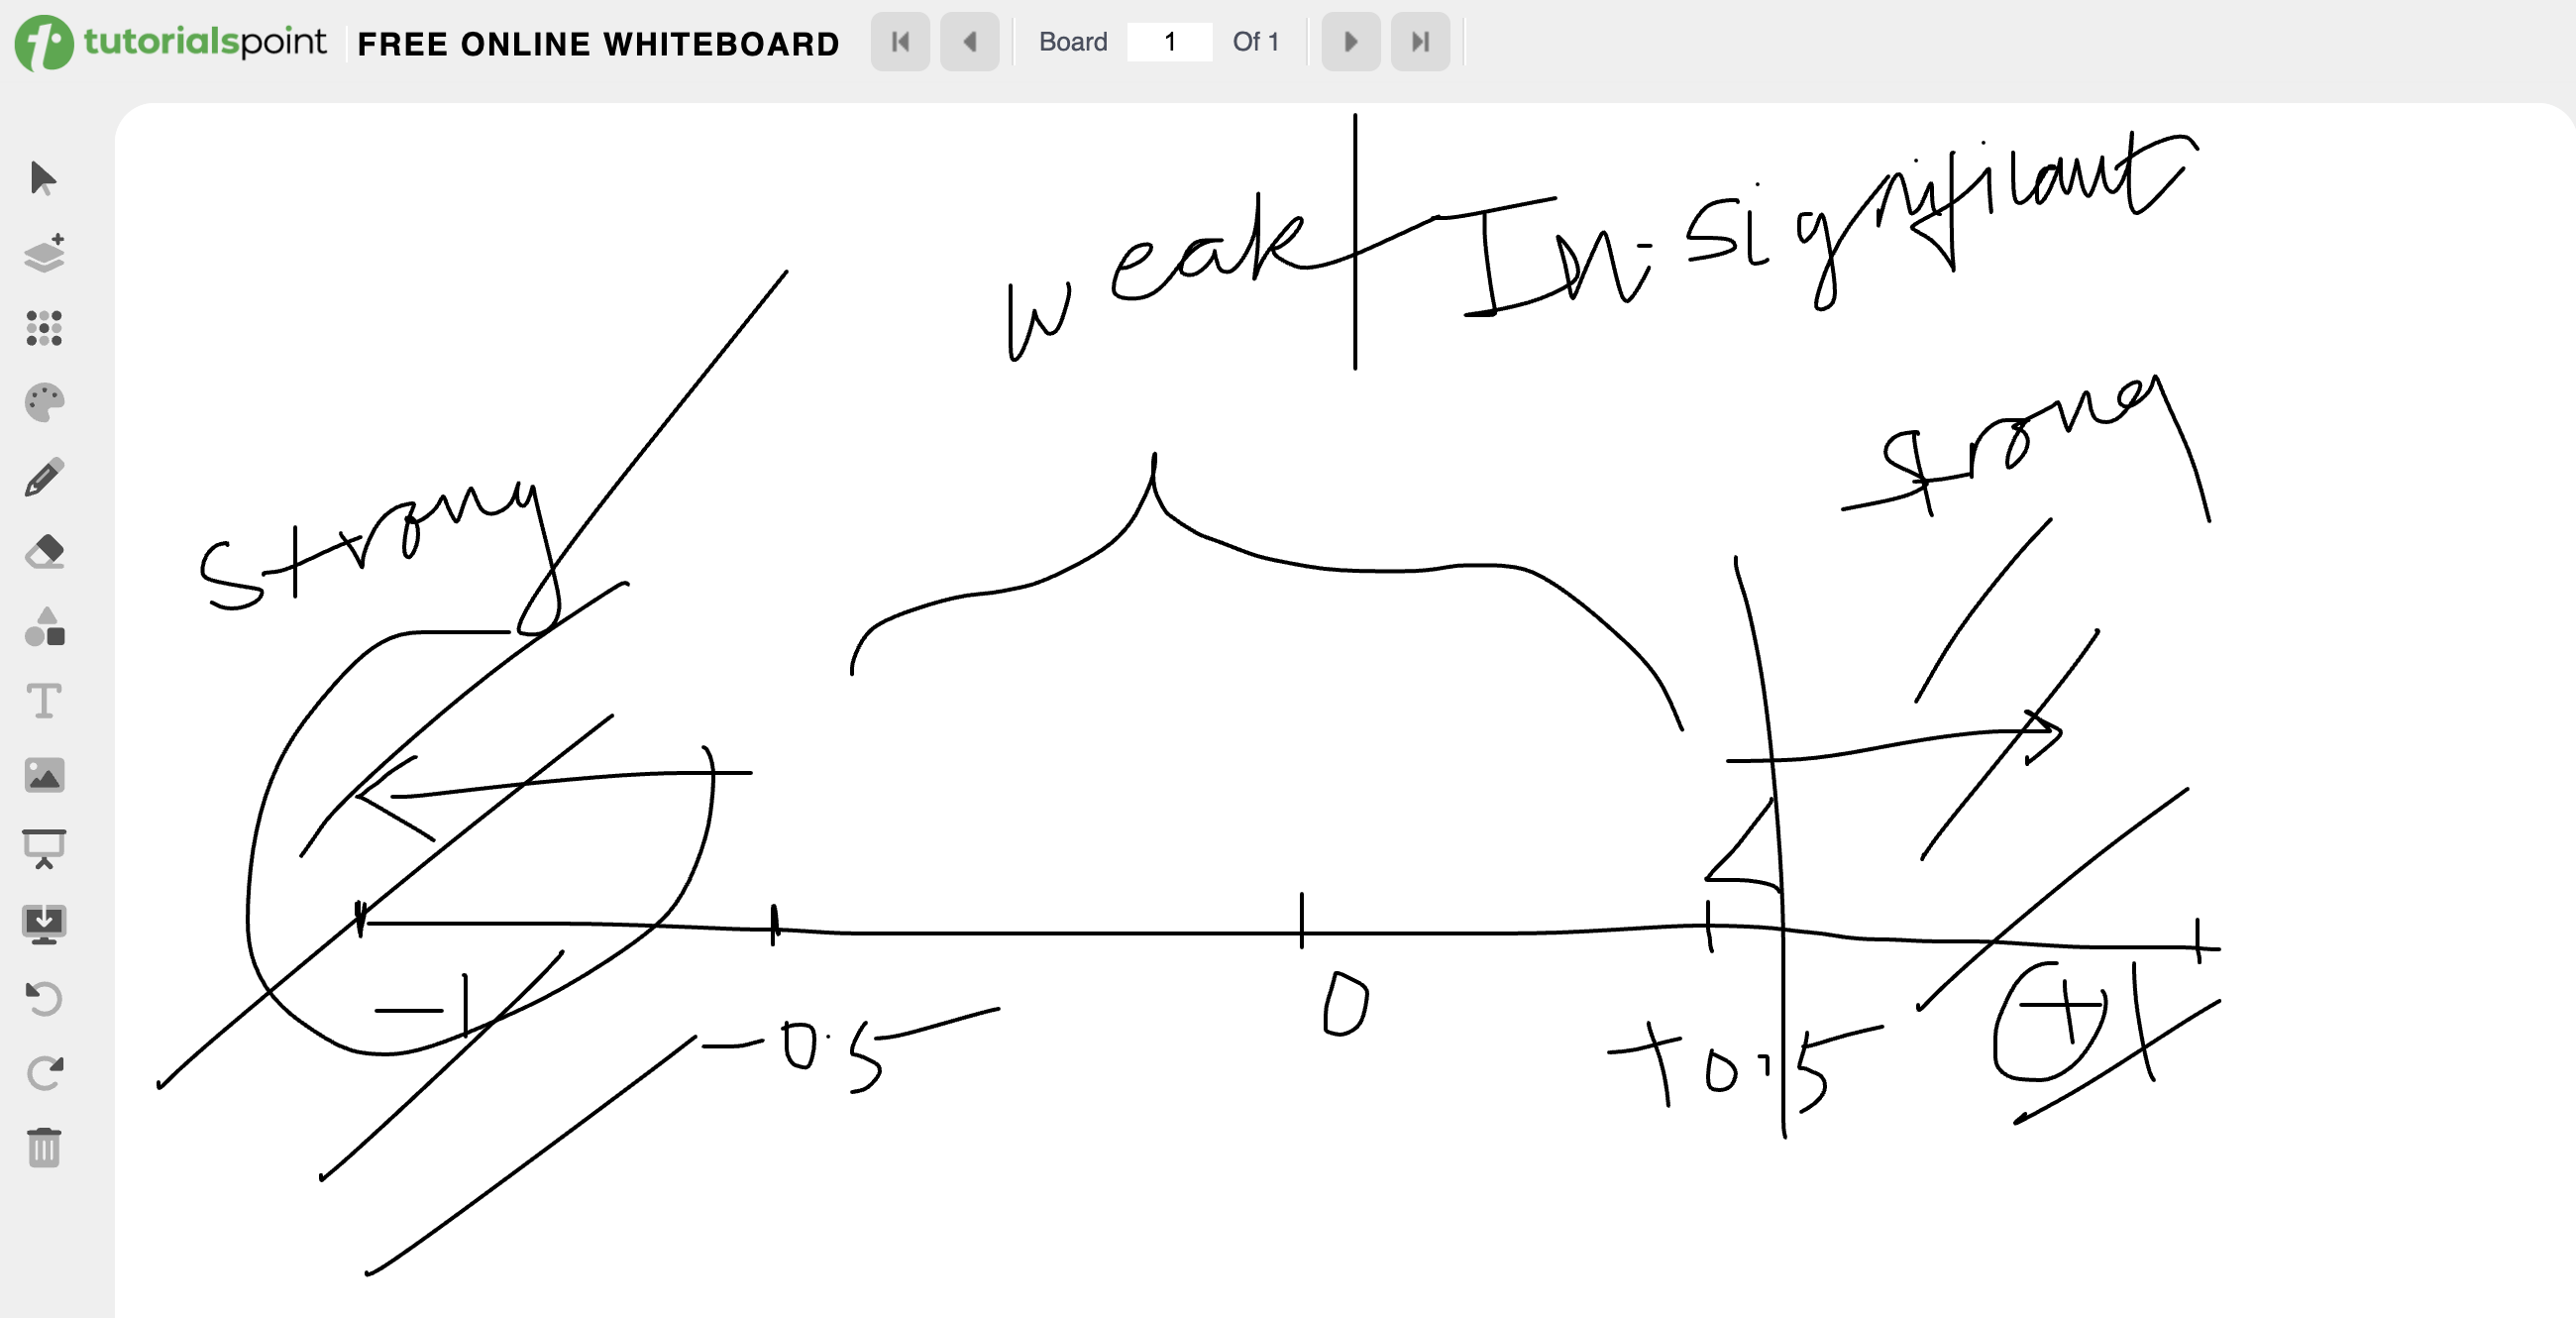 tutorialspoint FREE ONLINE WHITEBOARD Board 1 Of 1
weak In-significant
strong
strong
-1 -0.5 0 +0.5 +1